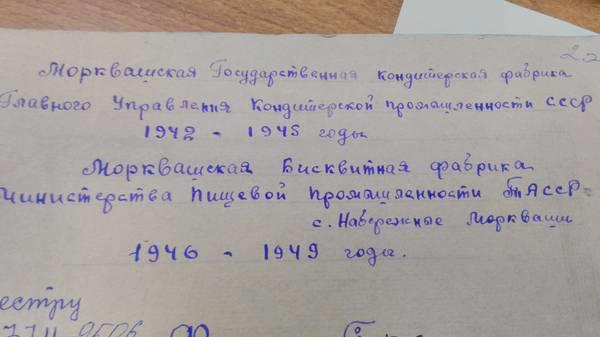 Морквашская Государственная кондитерская фабрика
Главного Управления Кондитерской промышленности СССР
1942 - 1945 годы
Морквашская Бисквитная фабрика
Министерства Пищевой Промышленности ТАССР
с. Набережные Моркваши
1946 - 1949 годы.
естру